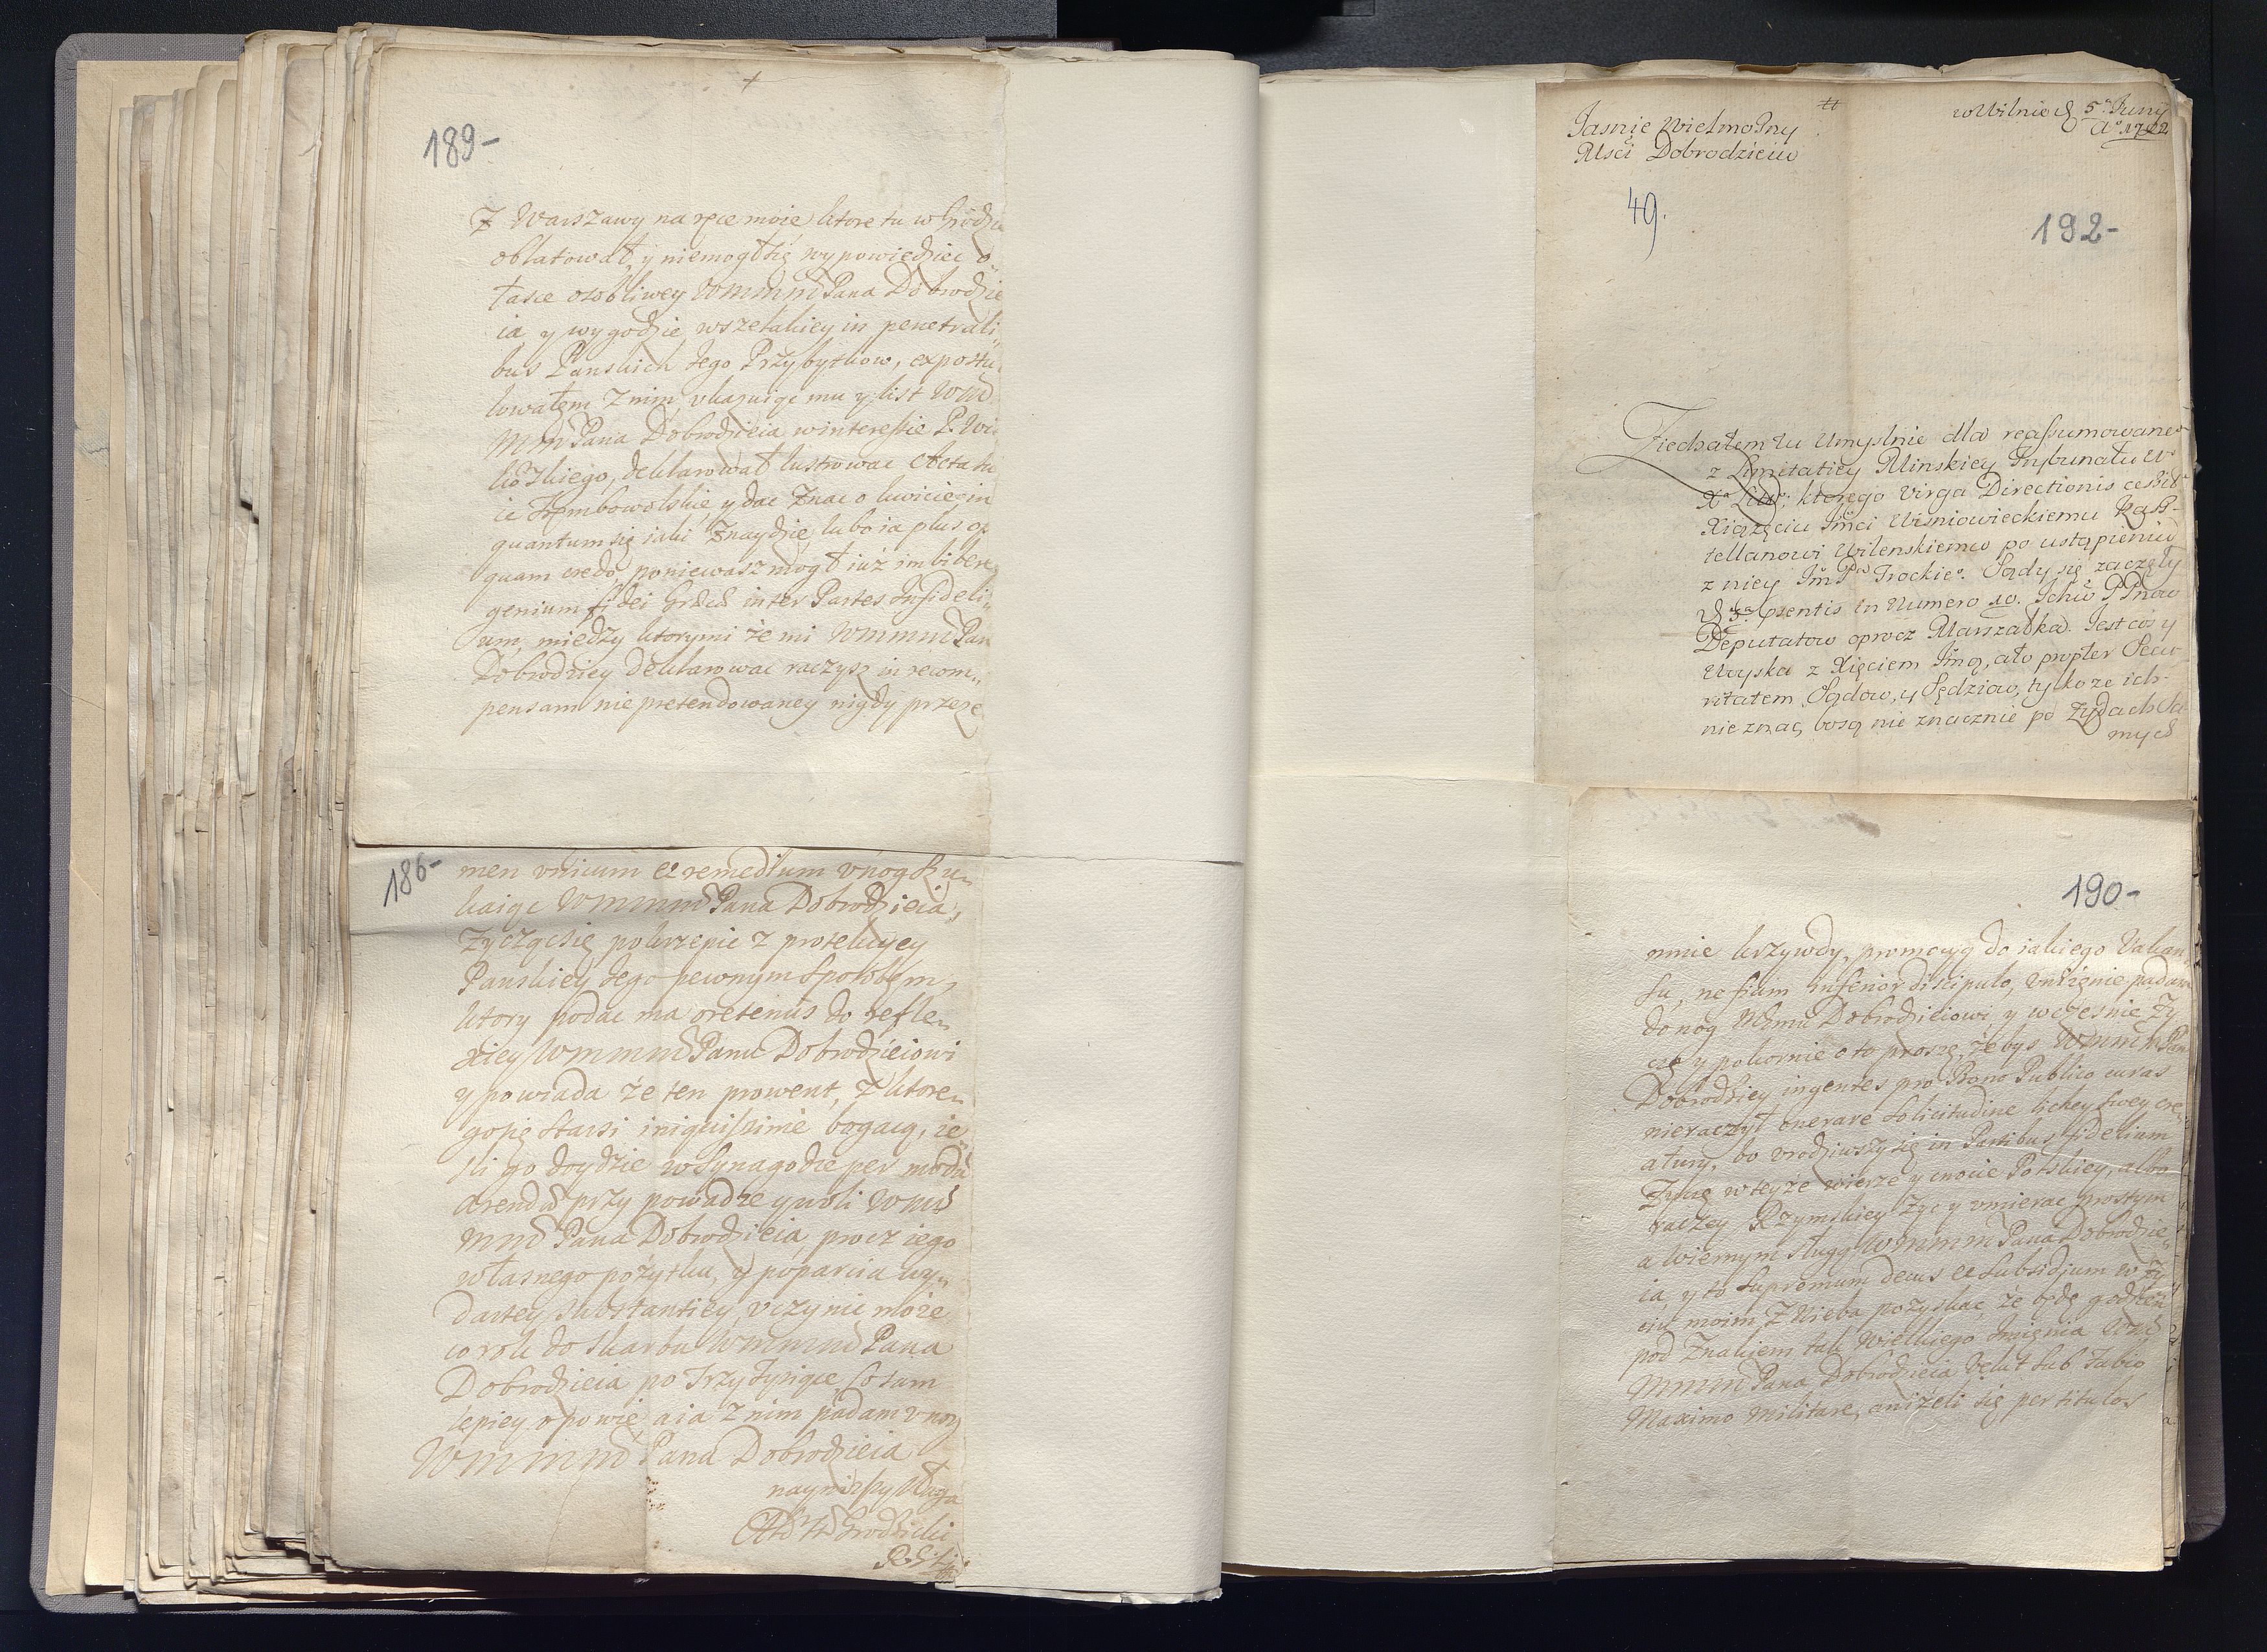 189-
Z Warszawy na ręce moie ktore tu w Grodzie
oblatował, y niemogł się wypowiedziec o
łasce osobliwey WMMM Pana Dobrodzie
ia y wygodzie wszelakiey in penetrali„
bus Panskich Jego Przybytkow, expostu„
lowałem z nim, ukazuiąc mu y list WM
MM Pana Dobrodzieia winteressie P. Wi
deklarował lustrowac Acta
ie Trembowolskie y dac znac o kwicie in
quantum się iaki znaydzie, lubo ia plus
quam credo, poniewasz mogł iuż imbibere
genium fidei inter Partes Infideli„
um, między ktorymi że mi WMMM Pan
Dobrodziey deklarowac raczysz in recom„
pensam nie pretendowaney nigdy przeze
186-
men unicum et remedium u nog szu„
kaiąc WMMM Pana Dobrodzieia,
życząc się pokrzepic z protekcyey
Panskiey Jego pewnym sposobem,
ktory podac ma oretenus do refle„
xiey WMMM Panu Dobrodzieiowi
y powiada że ten prowent, z ktore„
go się starsi iniquissime bogacą, ie„
sli go doydzie w Synagodze per modum
arendæ przy powadze y woli WM
MM Pana Dobrodzieia procz iego
własnego pożytku, y poparcia wy„
dartey substantiey, uczynic może
co rok do skarbu WMMM Pana
Dobrodzieia po Trzy Tysiące co sam
lepiey opowie, a ia z nim padam u nog
WMMM Pana Dobrodzieia
nayniższy sługa
Grodzicki
Jasnie Wielmożny
Mści Dobrodzieiu
w Wilnie d 5ª Junij
Aº 1722
49.
192-
Ziechałem tu Umyslnie dla reassumowaneº
z Limitatiey Minskiey Trybunału W
Xª Litt: ktorego Virga Directionis cessit
Xiążęciu Jmci Wisniowieckiemu Kasz-
tellanowi Wilenskiemu po ustąpieniu
z niey Jm Pª Trockieº. Sądy się zaczęły
d 3ª praesentis in Numero 10. Ichm PPnow
Deputatow oprocz Marszałka. Jest cos y
Woyska z Xięciem Jmą, a to propter Secu
ritatem Sądow, y Sędziow, tylko ze ich
nie znac, bo są nie znacznie po Zydach Sa
mych
190-
mnie krzywdy, promocyą do iakiego Vakan„
su, ne fiam inferior discipulo, uniżenie padam
do nog Memu Dobrodzieiowi y wczesnie ży
czę y pokornie o to proszę, żebys WMMM Pan
Dobrodziey ingentes pro Bono Publico curas
nie raczył onerare solicitudine lichey swey cre„
atury, bo urodziwszy się in Partibus fidelium
życzę w teyże wierze y cnocie Polskiey, albo
raczey Rzymskiey żyć y umierac prostym
a wiernym sługą WMMM Pana Dobrodzie„
ia, y to supremum decus et subsidium w ży
ciu moim z Nieba pozyskac, że będę godzien
pod Znakiem tak Wielkiego Imienia WM
MMM Pana Dobrodzieia velut sub Fabio
Maximo militare, aniżeli się per titulos